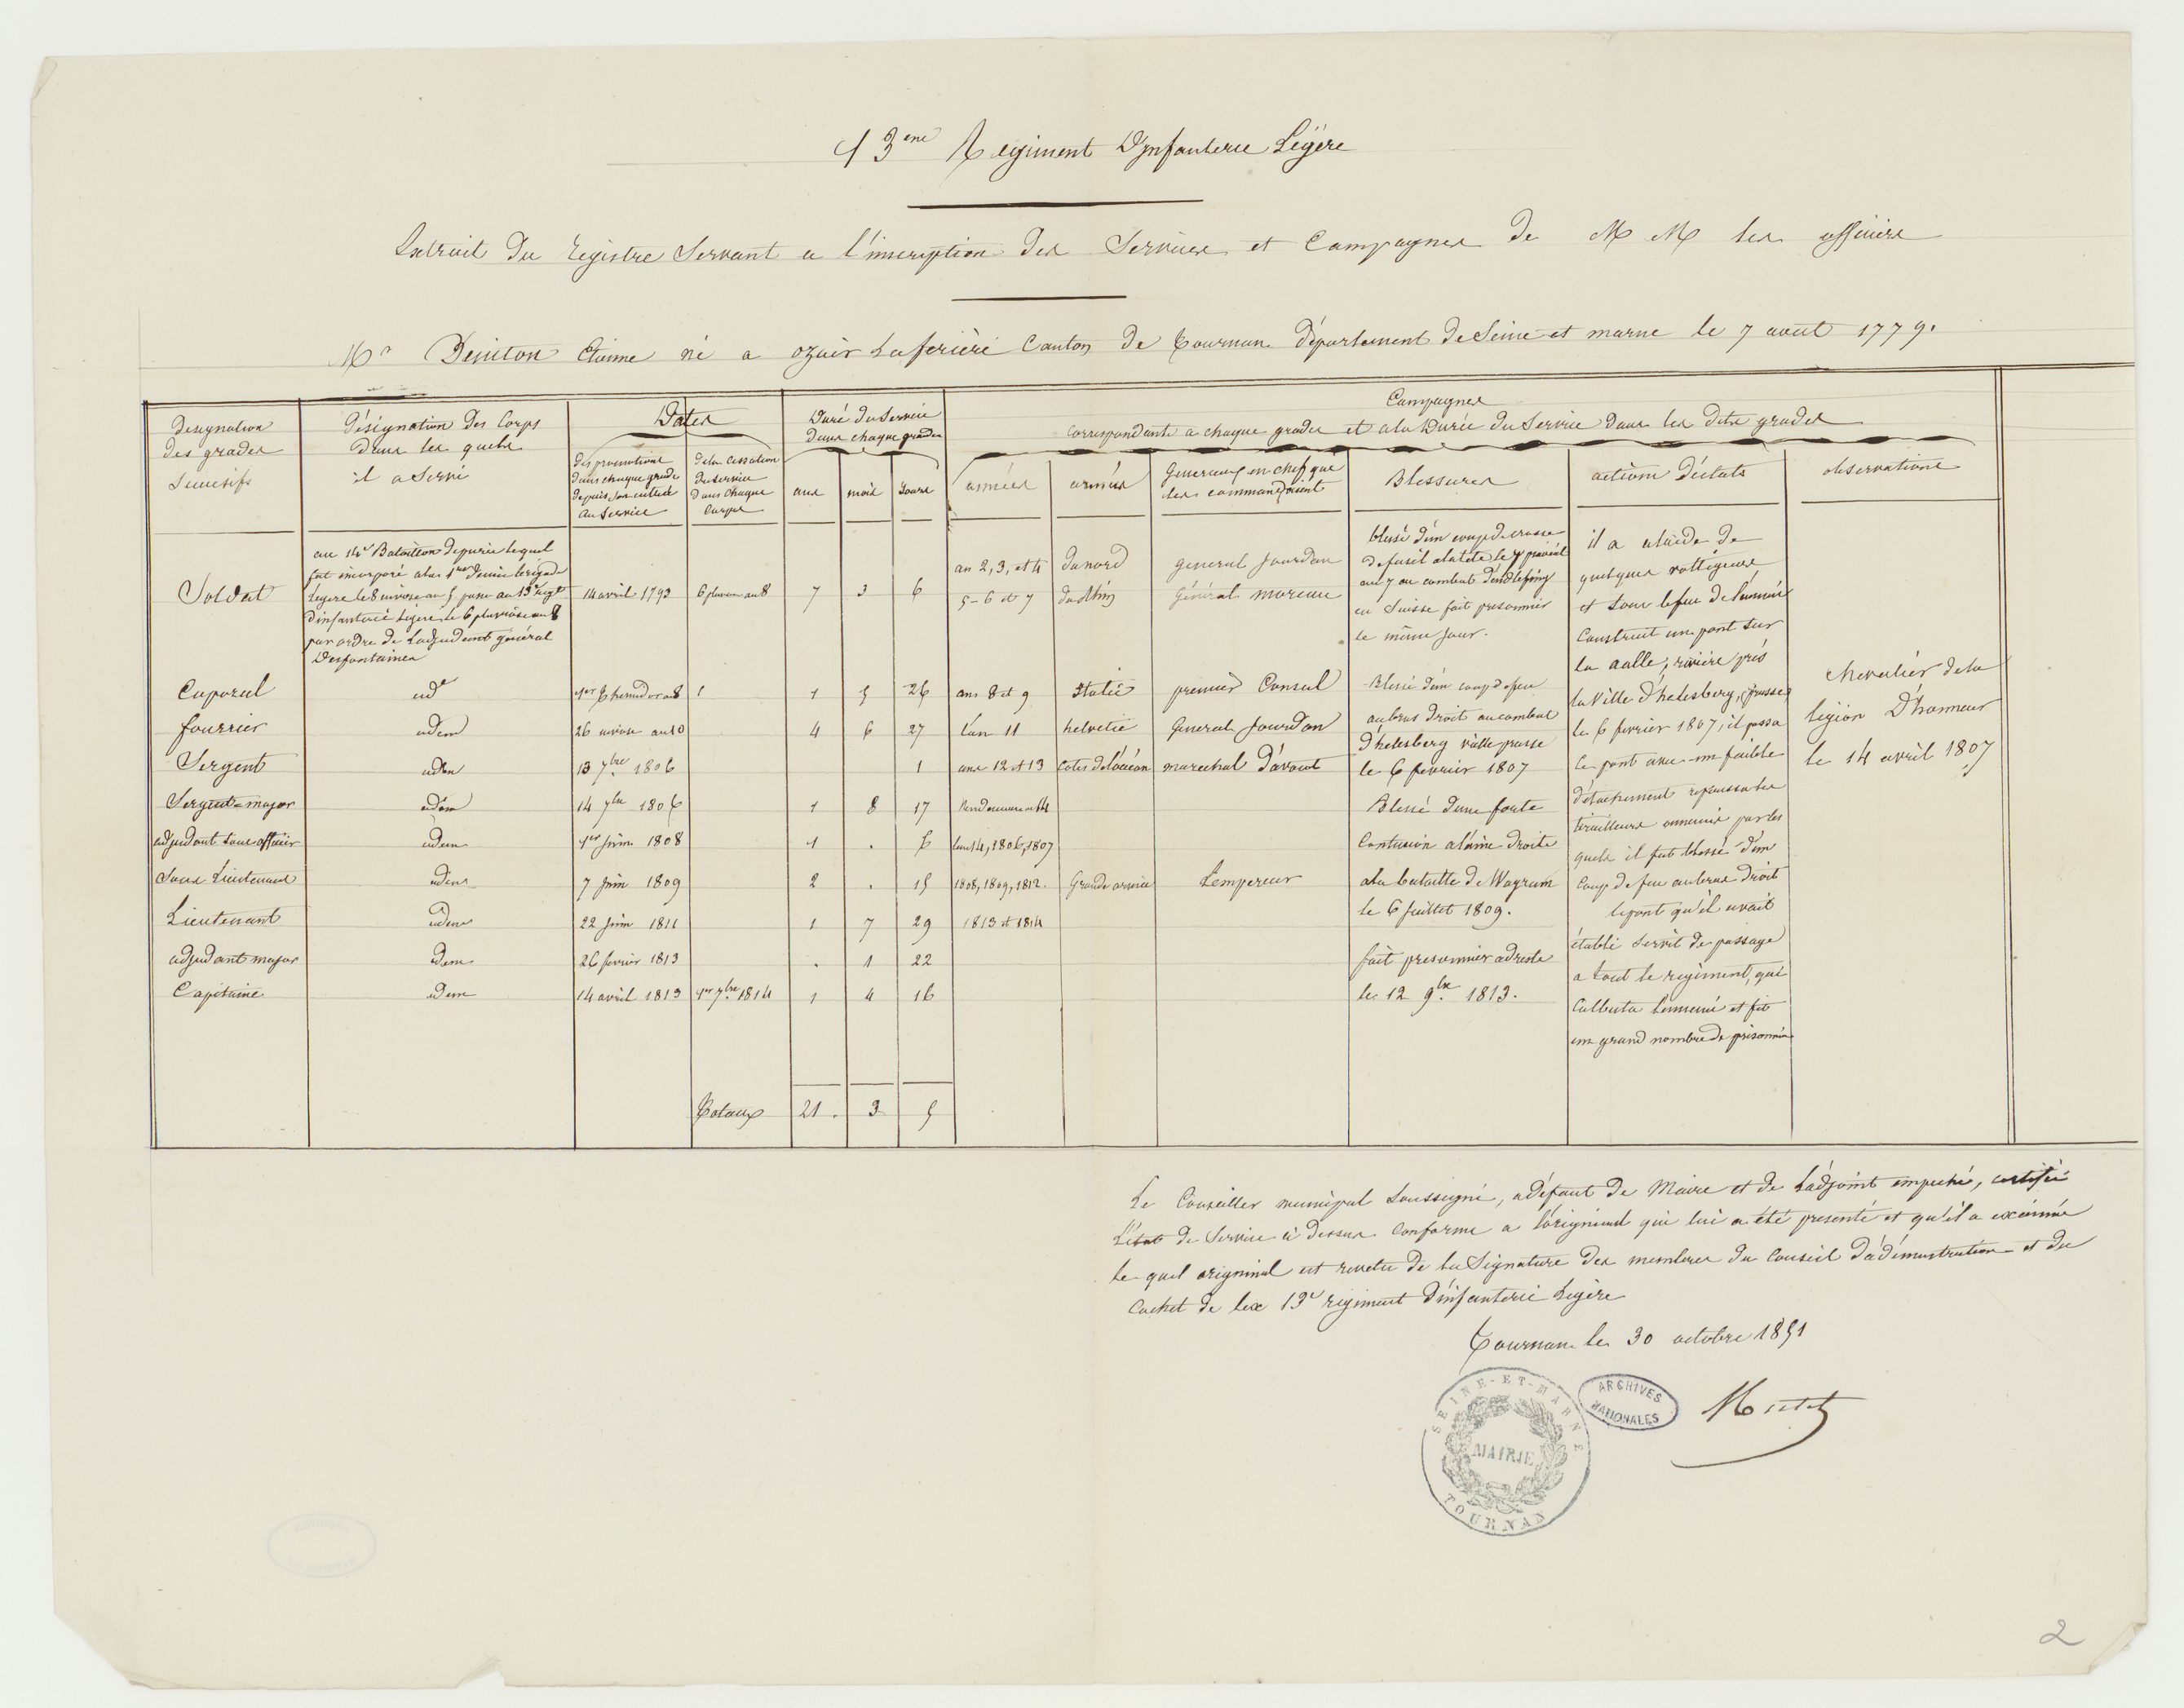 13eme Regiment D'infanterie Légère
Extrait du registre Servant a l'inscription des Services et Campagnes de MM les officiers
Mr Deniton Etienne né a ozoir Laferière Canton de Tournan département de Seine et marne le 7 aout 1779.
Designation des grades Successifs
désignation des Corps dans les quels il a Servi
Dates
des promotions dans chaque grade depuis son entrée au Service
de la Cessation du service dans chaque Corps
Duré du Service dans chaque grades
ans
mois
Jours
Campagnes
correspondants a chaque grades et ala durée du Service dans les dits grades
années
armées
generaux en chef que les commandaient
Blessures
actions d'éclats
observations
Soldat
au 14e Bataillon de puis lequel
fut incorporé a la 1re demie brigade
Légere le 8 nivose an 5 passé au 13e regt
d'infanterie Légere le 6 pluviôse an 8
par ordre de Ladjudant général
Desfontaines
14 avril 1793
6 pluviose an 8
7
3
6
an 2, 3, et 4
du nord
général Jourdan
5-6 et 7
du Rhin
Général moreau
Caporal
ide
1er Thermidor an 8
1
1
5
26
ans 8 et 9
Italie
premier Consul
fourrier
idem
26 nivose an 10
4
6
27
L'an 11
helvetie
General Jourdan
Sergent
idem
13 7bre 1806
1
ans 12 et 13
Cotes de l'océan
marechal d'avout
Sergent-major
idem
14 7bre 1806
1
8
17
Vendemiaire an 14
adjudant sous officier
idem
1er Juin 1808
1
.
6
l'an 14, 1806, 1807
Sous Lieutenant
idem
7 Juin 1809
2
.
15
1808, 1809, 1812.
Grande armée
L'empereur
Lieutenant
idem
22 Juin 1811
1
7
29
1813 et 1814
adjudant major
idem
26 fevrier 1813
.
1
22
Capitaine
idem
14 avril 1813
1er 7bre 1814
1
4
16
Totaux
21.
3
5
blessé d'un coup de crosse
de fusil a la tete le
an 7 au combat
en Suisse fait prisonnier
le même jour.
Blessé d'un coup de feu
au bras droit au combat
d'helesberg ville prusse
le 6 fevrier 1807
Blessé d'une forte
Contusion a l'aine droite
a la bataille de Wagram
le 6 Juillet 1809.
fait presonnier a dresde
le 12 9bre 1813.
il a alaide de
quelques voltigeurs
et sous le feu de l'ennemi
Construit un pont sur
la aalle, rivière près
la Ville d'helesberg, (prusse)
le 6 fevrier 1807, il passa
le pont avec un faible
détachement repoussa les
tirailleurs ennemis par les
quels il fut blessé d'un
Coup de feu au bras droit
le pont qu'il avait
établi servit de passage
a tout le regiment, qui
Culbuta l'ennemi et fit
un grand nombre de prisonniers
chevalier de la
légion D'honneur
le 14 avril 1807
Le Conseiller municipal Soussigné, a défaut de Maire et de Ladjoint empeché, certifie
L'état de Service ci dessus conforme a l'original qui lui a été presenté et qu'il a examiné
le quel original est revetu de la Signature des membres du Conseil d'administration et du
Cachet de lex 13e regiment d'infanterie Legère
Tournan le 30 octobre 1851
SEINE-ET-MARNE
MAIRIE
TOURNAN
ARCHIVES
NATIONALES
2